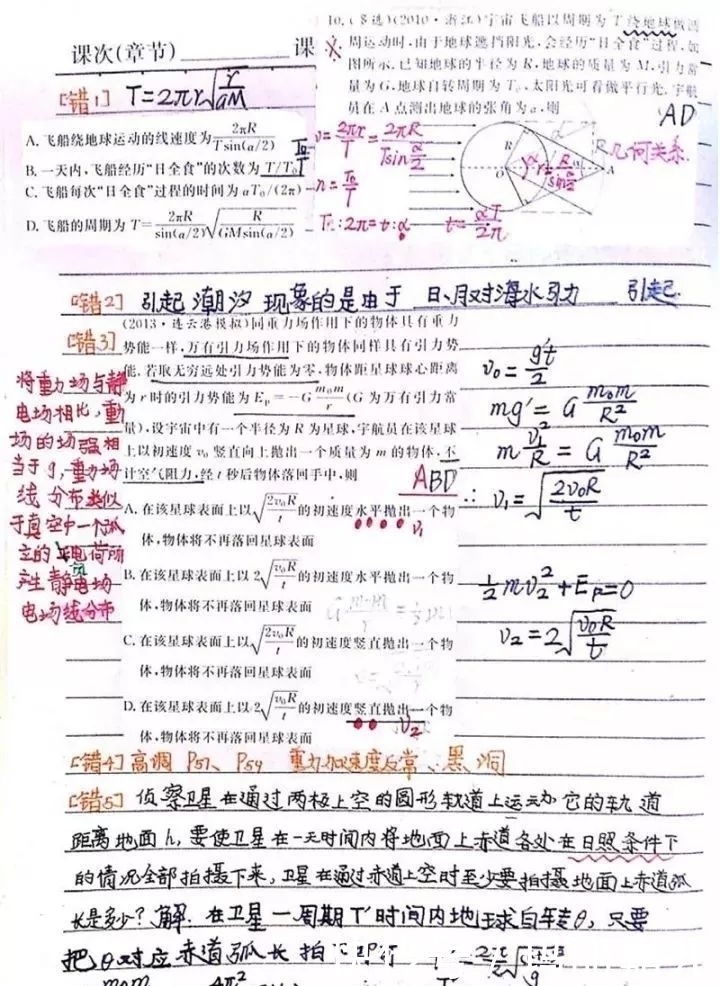 课次(章节)
课
10.(多选)(2010·浙江)宇宙飞船以周期为T绕地球做圆
周运动时,由于地球遮挡阳光,会经历“日全食”过程,如
图所示.已知地球的半径为R,地球的质量为M,引力常
量为G,地球自转周期为T₀,太阳光可看做平行光,宇航
员在A点测出地球的张角为α,则
AD
[错1] T=2πr√(r/GM)
A.飞船绕地球运动的线速度为2πR/(Tsin(α/2))
B.一天内,飞船经历“日全食”的次数为T/T₀
T₀/T
C.飞船每次“日全食”过程的时间为αT₀/(2π)
D.飞船的周期为T=2πR/sin(α/2)√(R/(GMsin(α/2)))
v=2πr/T=2πR/(Tsin(α/2))
n=T₀/T
T:2π=t:α t=αT/2π
R
O
α
A
r=R/sin(α/2)
几何关系
[错2] 引起潮汐现象的是由于 日、月对海水引力 引起
[错3]
(2013·连云港模拟)同重力场作用下的物体具有重力
势能一样,万有引力场作用下的物体同样具有引力势
能.若取无穷远处引力势能为零,物体距星球球心距离
为r时的引力势能为Eₚ=-G m₀m/r(G为万有引力常
量),设宇宙中有一个半径为R为星球,宇航员在该星球
上以初速度v₀竖直向上抛出一个质量为m的物体,不
计空气阻力,经t秒后物体落回手中,则
ABD
A.在该星球表面上以√(2v₀R/t)的初速度水平抛出一个物
v₁
体,物体将不再落回星球表面
B.在该星球表面上以2√(v₀R/t)的初速度水平抛出一个物
体,物体将不再落回星球表面
C.在该星球表面上以√(2v₀R/t)的初速度竖直抛出一个物
体,物体将不再落回星球表面
D.在该星球表面上以2√(v₀R/t)的初速度竖直抛出一个物
v₂
体,物体将不再落回星球表面
将重力场与静
电场相比,重力
场的场强相
当于g,重力场
线分布类似
于真空中一个孤
立的正电荷所
产生静电场
电场线分布
v₀=g't/2
mg'=G m₀m/R²
m v₁²/R=G m₀m/R²
∴v₁=√(2v₀R/t)
½mv₂²+Eₚ=0
v₂=2√(v₀R/t)
[错4] 高调 P57、P59 重力加速度反常、黑洞
[错5] 侦察卫星在通过两极上空的圆形轨道上运动它的轨道
距离地面h,要使卫星在一天时间内将地面上赤道各处在日照条件下
的情况全部拍摄下来,卫星在通过赤道上空时至少要拍摄地面上赤道弧
长是多少?解:在卫星一周期T'时间内地球自转θ,只要
把θ对应赤道弧长拍